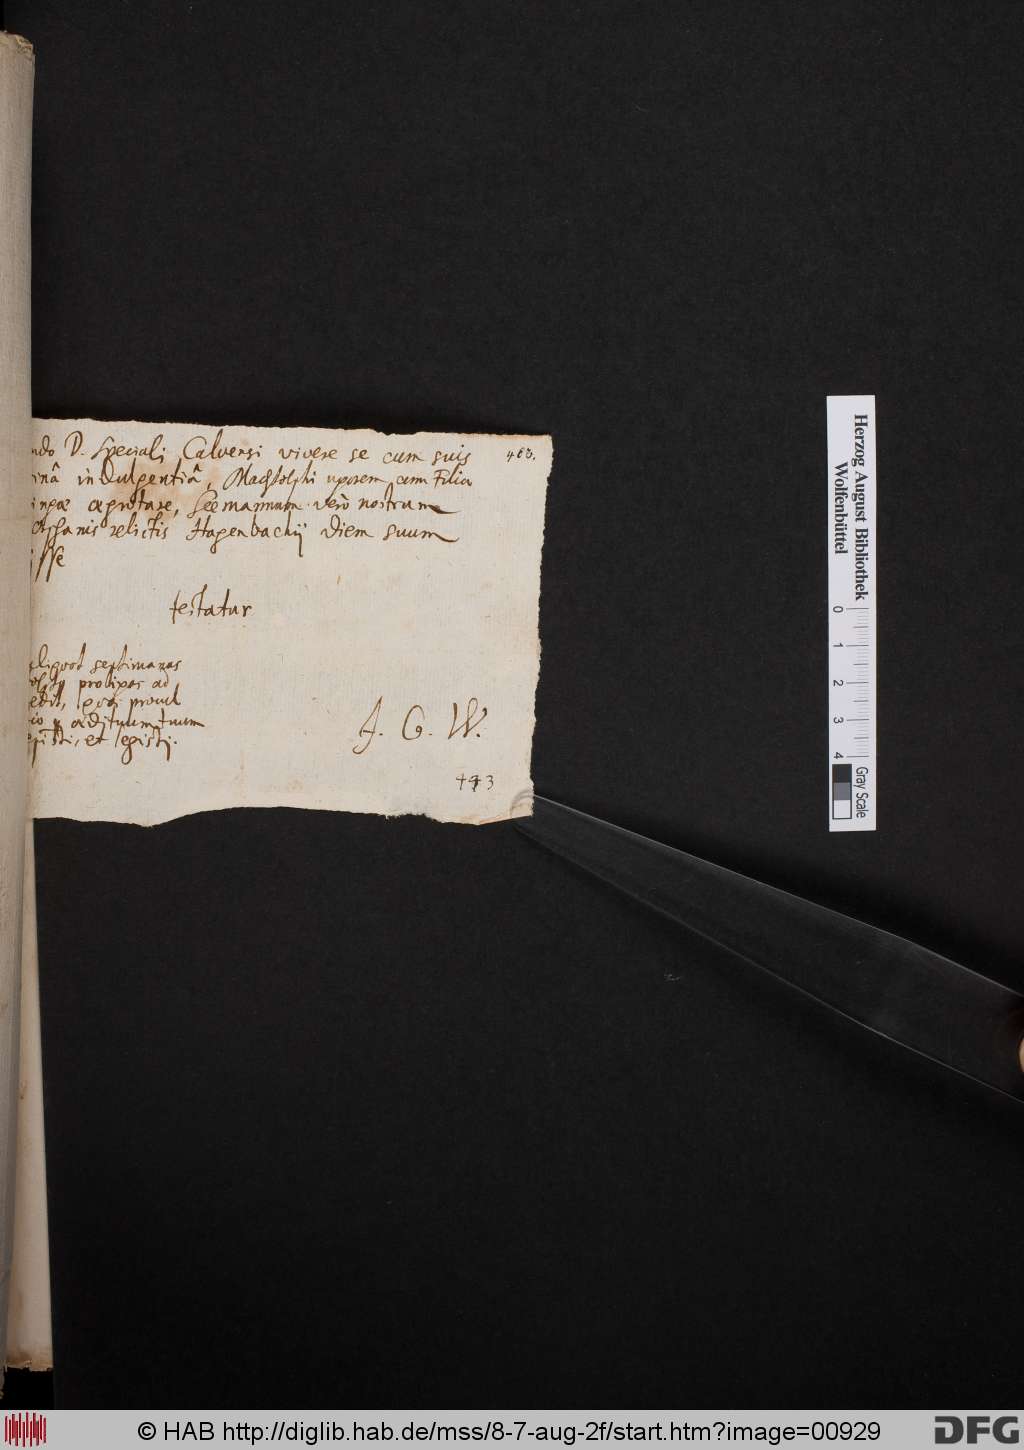 ndo D. Speciali Calvensi vivere se cum suis 463.
inâ indulgentiâ, Machtolphi uxorem cum Filia
ingæ ægrotare, Seemannum verò nostrum
orphanis relictis Hagenbachij diem suum
isse
testatur
aliquot septimanas
prolixas ad
edit, procul
ædituum tuum
episti, et legisti.
J. G. W.
443
Herzog August Bibliothek
Wolfenbüttel
0 1 2 3 4
Gray Scale
© HAB http://diglib.hab.de/mss/8-7-aug-2f/start.htm?image=00929
DFG